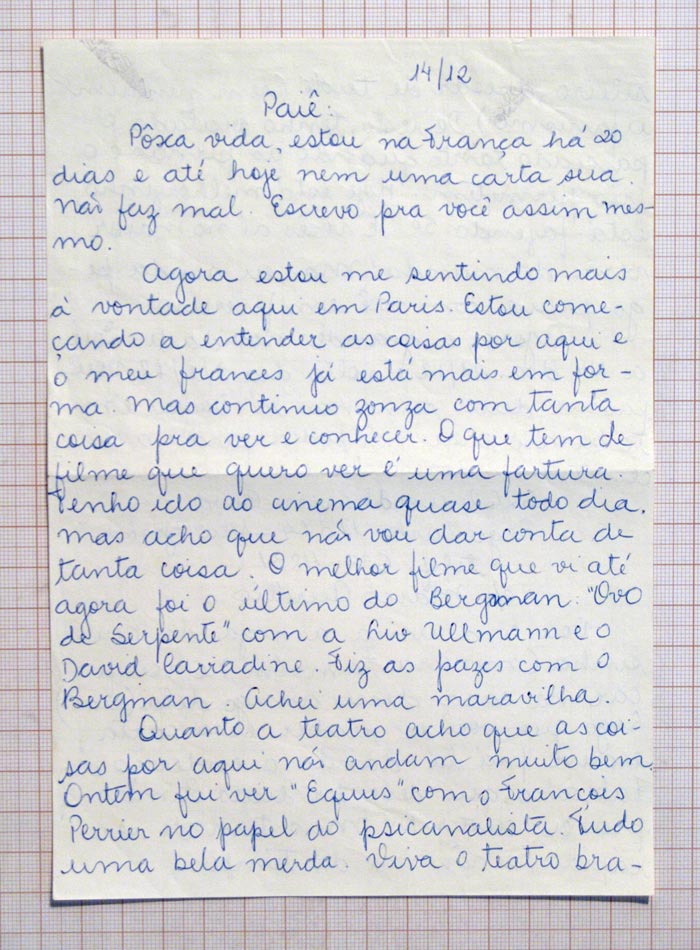 14/12
Pôxa vida, estou na França há 20
dias e até hoje nem uma carta sua.
Não faz mal. Escrevo pra você assim mes-
mo.
Agora estou me sentindo mais
à vontade aqui em Paris. Estou come-
çando a entender as coisas por aqui e
o meu frances já está mais em for-
ma mas continuo zonza com tanta
coisa pra ver e conhecer. O que tem de
filme que quero ver é uma fartura.
Tenho ido ao cinema quase todo dia.
mas acho que não vou dar conta de
tanta coisa. O melhor filme que vi até
agora foi o último do Bergman. "Ovo
de Serpente" com a Liv Ullmann e o
David Carradine. Fiz as pazes com o
Bergman. Achei uma maravilha.
Quanto a teatro acho que as coi-
sas por aqui não andam muito bem.
Ontem fui ver "Equus" com o François
Perrier no papel do psicanalista. Tudo
uma bela merda. Viva o teatro bra-